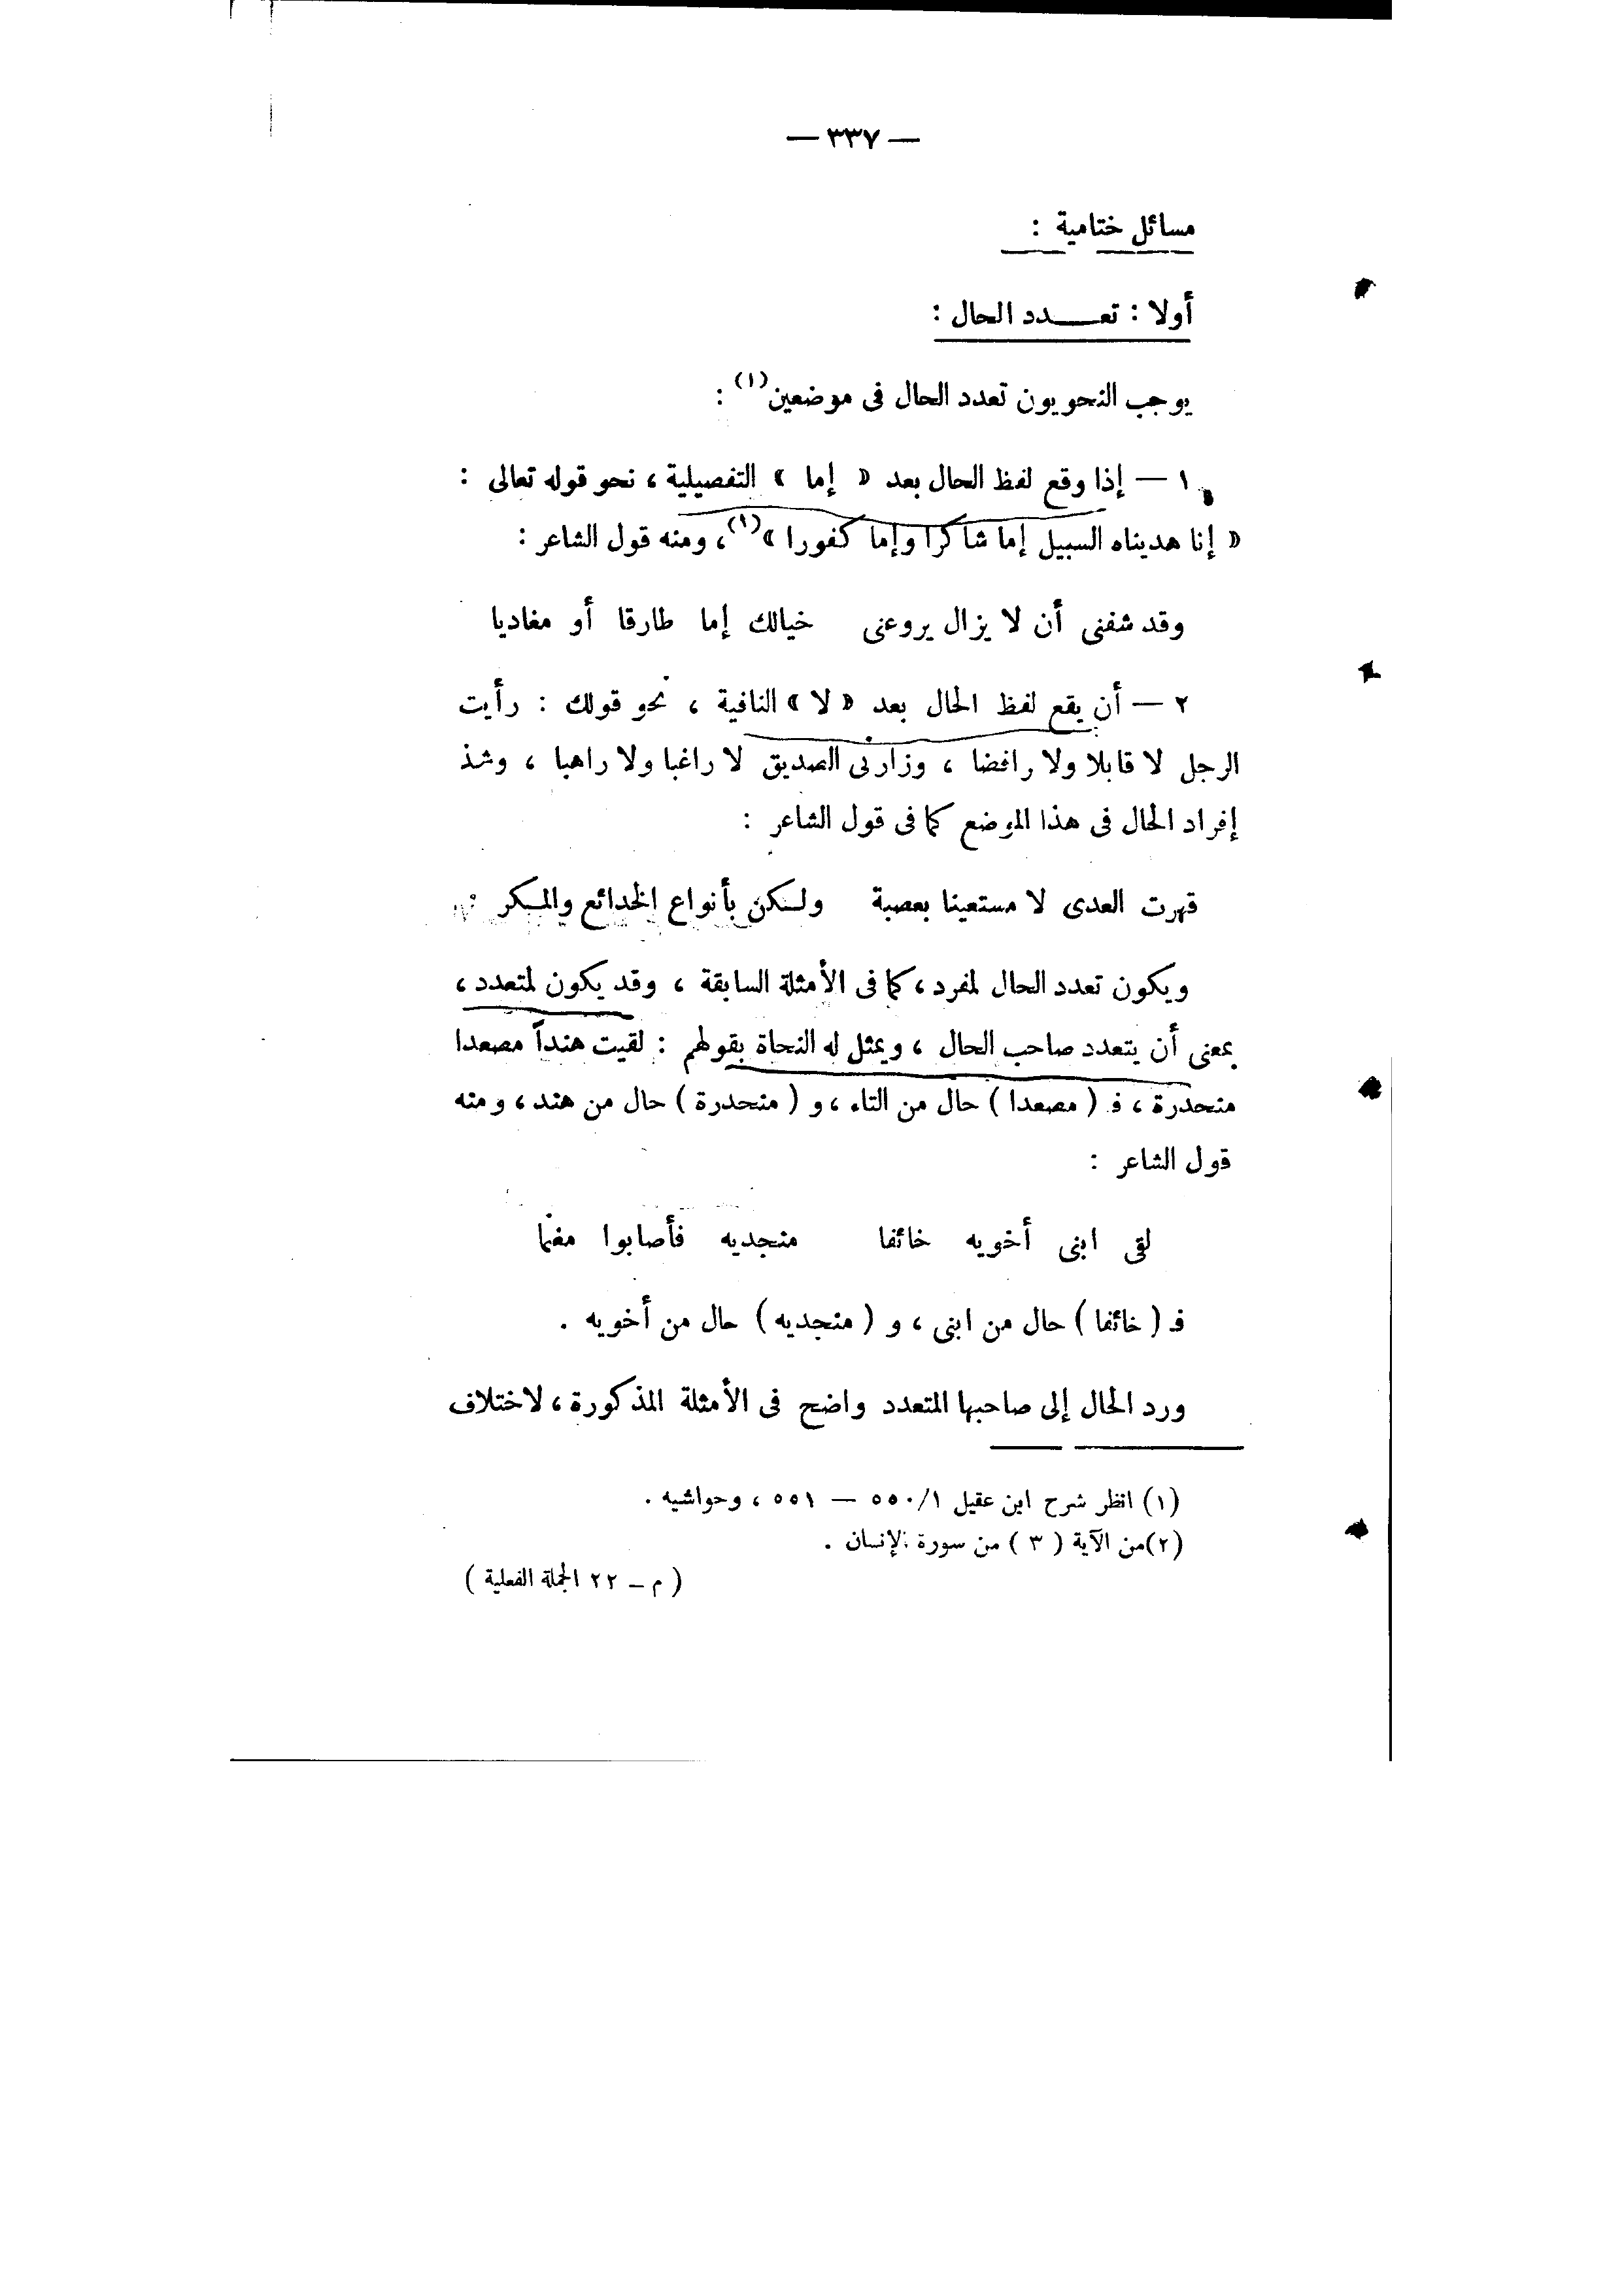 — ٣٣٧ —
مسائل ختامية :
أولا : تعــــدد الحال :
يوجب النحويون تعدد الحال فى موضعين(١) :
١ — إذا وقع لفظ الحال بعد « إما » التفصيلية ، نحو قوله تعالى :
« إنا هديناه السبيل إما شاكرا وإما كفورا »(١)، ومنه قول الشاعر :
وقد شفنى أن لا يزال يروعنى خيالك إما طارقا أو مغاديا
٢ — أن يقع لفظ الحال بعد « لا » النافية ، نحو قولك : رأيت
الرجل لا قابلا ولا رافضا ، وزارنى الصديق لا راغبا ولا راهبا ، وشذ
إفراد الحال فى هذا الموضع كما فى قول الشاعر :
قهرت العدى لا مستعينا بعصبة ولكن بأنواع الخدائع والمكر
ويكون تعدد الحال لمفرد ، كما فى الأمثلة السابقة ، وقد يكون لمتعدد ،
بمعنى أن يتعدد صاحب الحال ، ويمثل له النحاة بقولهم : لقيت هنداً مصعدا
منحدرة ، فـ ( مصعدا ) حال من التاء ، و ( منحدرة ) حال من هند ، ومنه
قول الشاعر :
لقى ابنى أخويه خائفا منجديه فأصابوا مغنما
فـ ( خائفا ) حال من ابنى ، و ( منجديه ) حال من أخويه .
ورد الحال إلى صاحبها المتعدد واضح فى الأمثلة المذكورة ، لاختلاف
(١) انظر شرح ابن عقيل ٥٥٠/١ — ٥٥١ ، وحواشيه .
(٢) من الآية ( ٣ ) من سورة الإنسان .
( م – ٢٢ الجملة الفعلية )